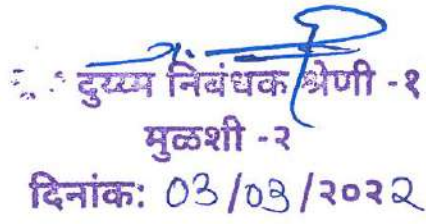 दुय्यम निबंधक श्रेणी -१
मुळशी -२
दिनांक: 03/03/२०२२